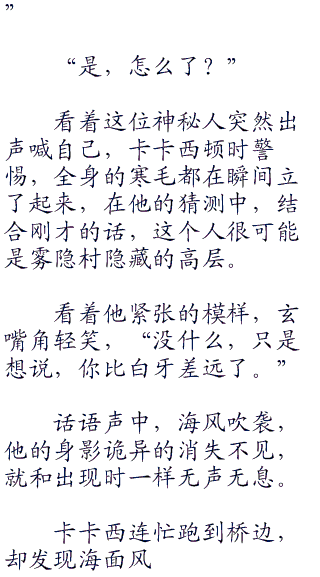 ”
“是，怎么了？”
看着这位神秘人突然出
声喊自己，卡卡西顿时警
惕，全身的寒毛都在瞬间立
了起来，在他的猜测中，结
合刚才的话，这个人很可能
是雾隐村隐藏的高层。
看着他紧张的模样，玄
嘴角轻笑，“没什么，只是
想说，你比白牙差远了。”
话语声中，海风吹袭，
他的身影诡异的消失不见，
就和出现时一样无声无息。
卡卡西连忙跑到桥边，
却发现海面风